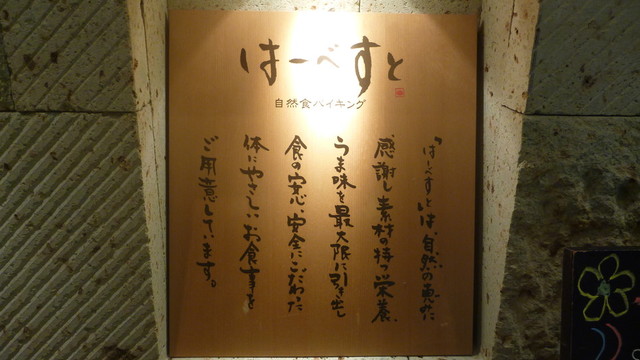 はーべすと
自然食バイキング
"はーべすと"は、自然の恵みに
感謝し素材の持つ栄養、
うま味を最大限に引き出し
食の安心、安全にこだわった
体にやさしいお食事を
ご用意しています。